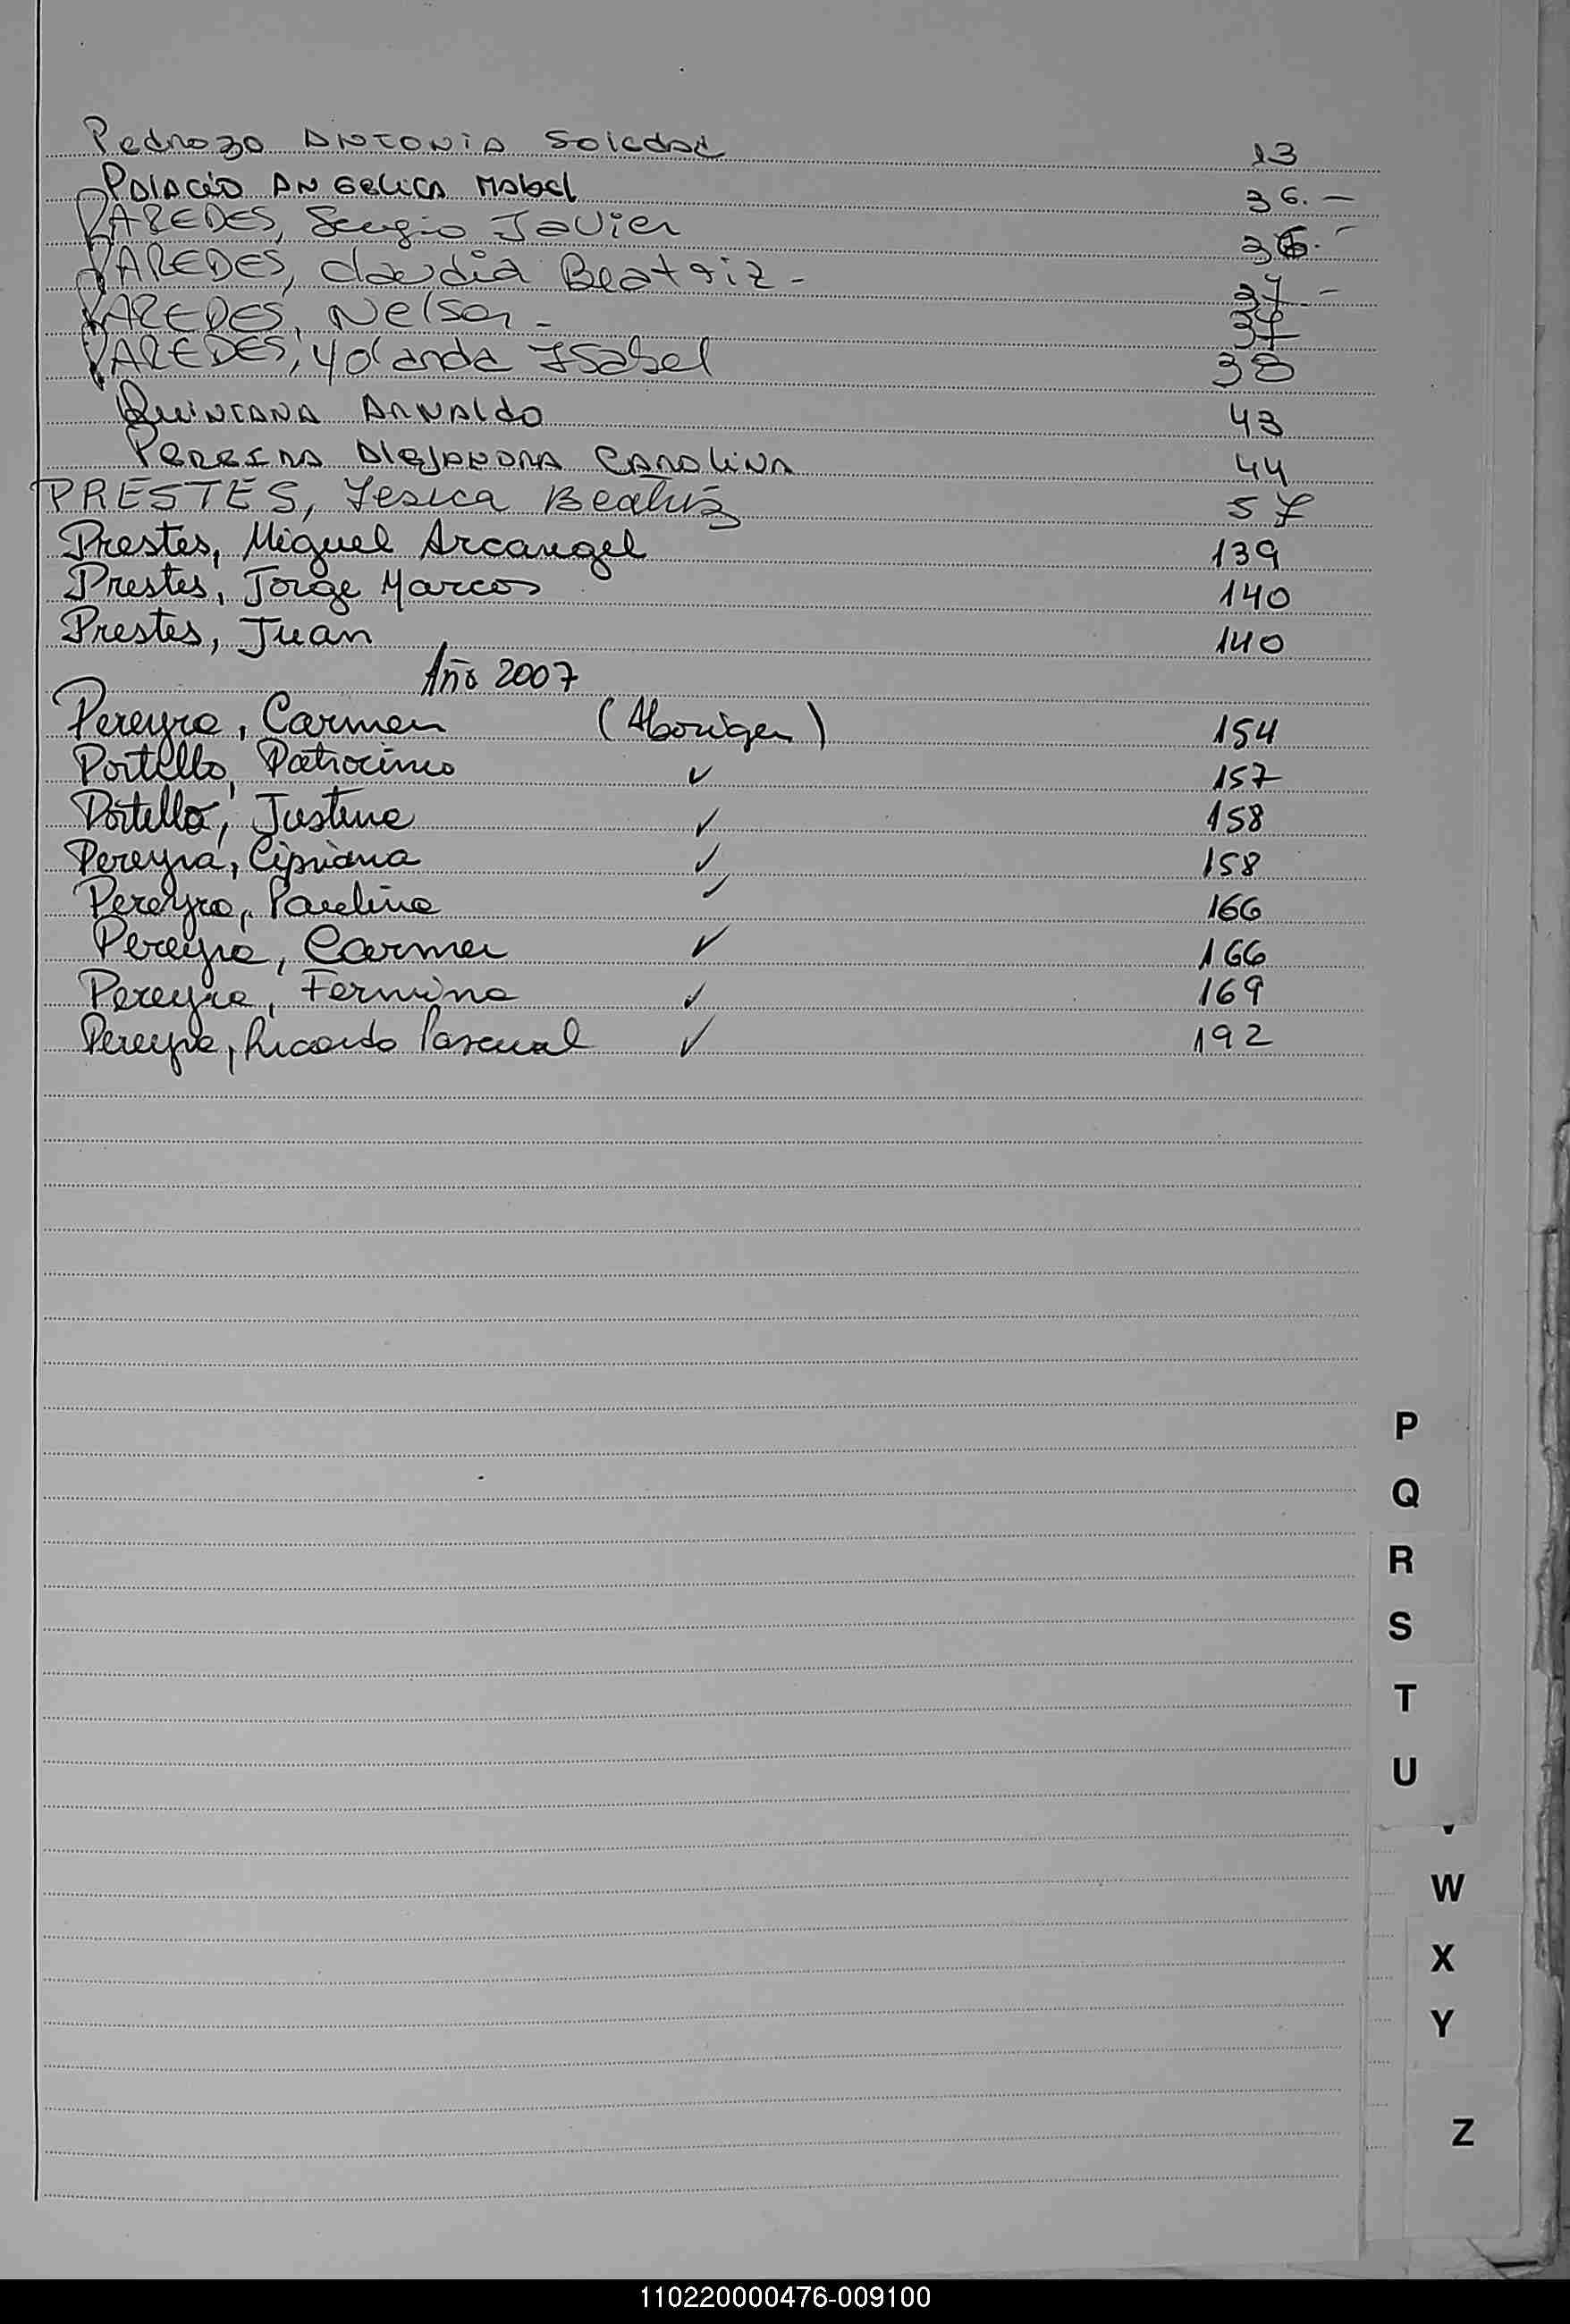 Pedrozo ANTONIA Soledad 13
PALACIO ANGELICA Mabel 36.-
PAREDES, Sergio Javier 36.-
PAREDES, Claudia Beatriz- 37.-
PAREDES, Nelson- 37
PAREDES, Yolanda Isabel 38
QUINTANA ARNALDO 43
PEREIRA ALEJANDRA CAROLINA 44
PRESTES, Yesica Beatriz 57
Prestes, Miguel Arcangel 139
Prestes, Jorge Marcos 140
Prestes, Juan 140
Año 2007
Pereyra, Carmen (Aborigen) 154
Portillo, Patrocinio ✓ 157
Portillo, Justina ✓ 158
Pereyra, Cipriana ✓ 158
Pereyra, Paulina ✓ 166
Pereyra, Carmen ✓ 166
Pereyra, Fermina ✓ 169
Pereyra, Ricardo Pascual ✓ 192
P
Q
R
S
T
U
W
X
Y
Z
110220000476-009100